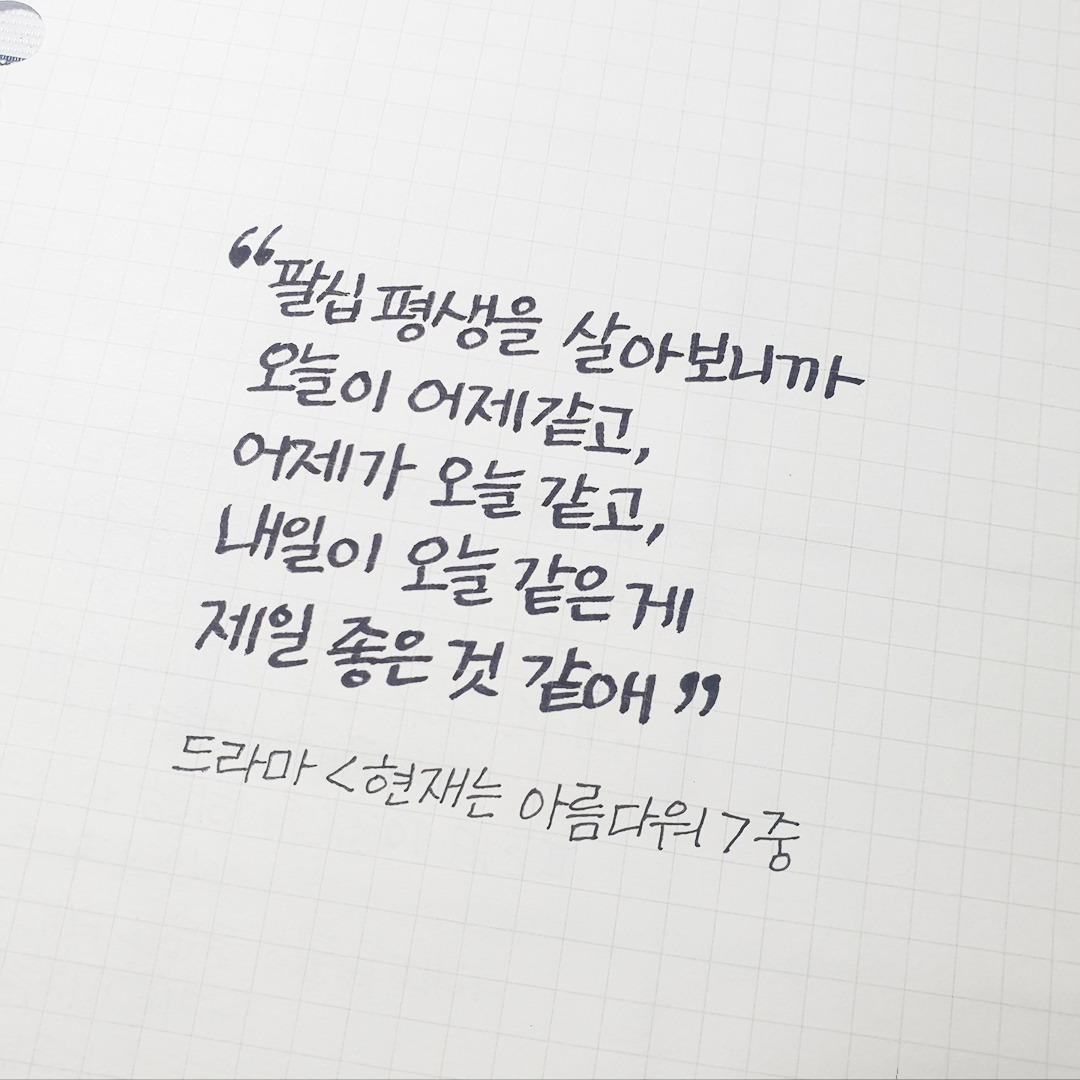 “팔십 평생을 살아보니까
오늘이 어제같고,
어제가 오늘 같고,
내일이 오늘 같은 게
제일 좋은 것 같애”
드라마 <현재는 아름다워>중